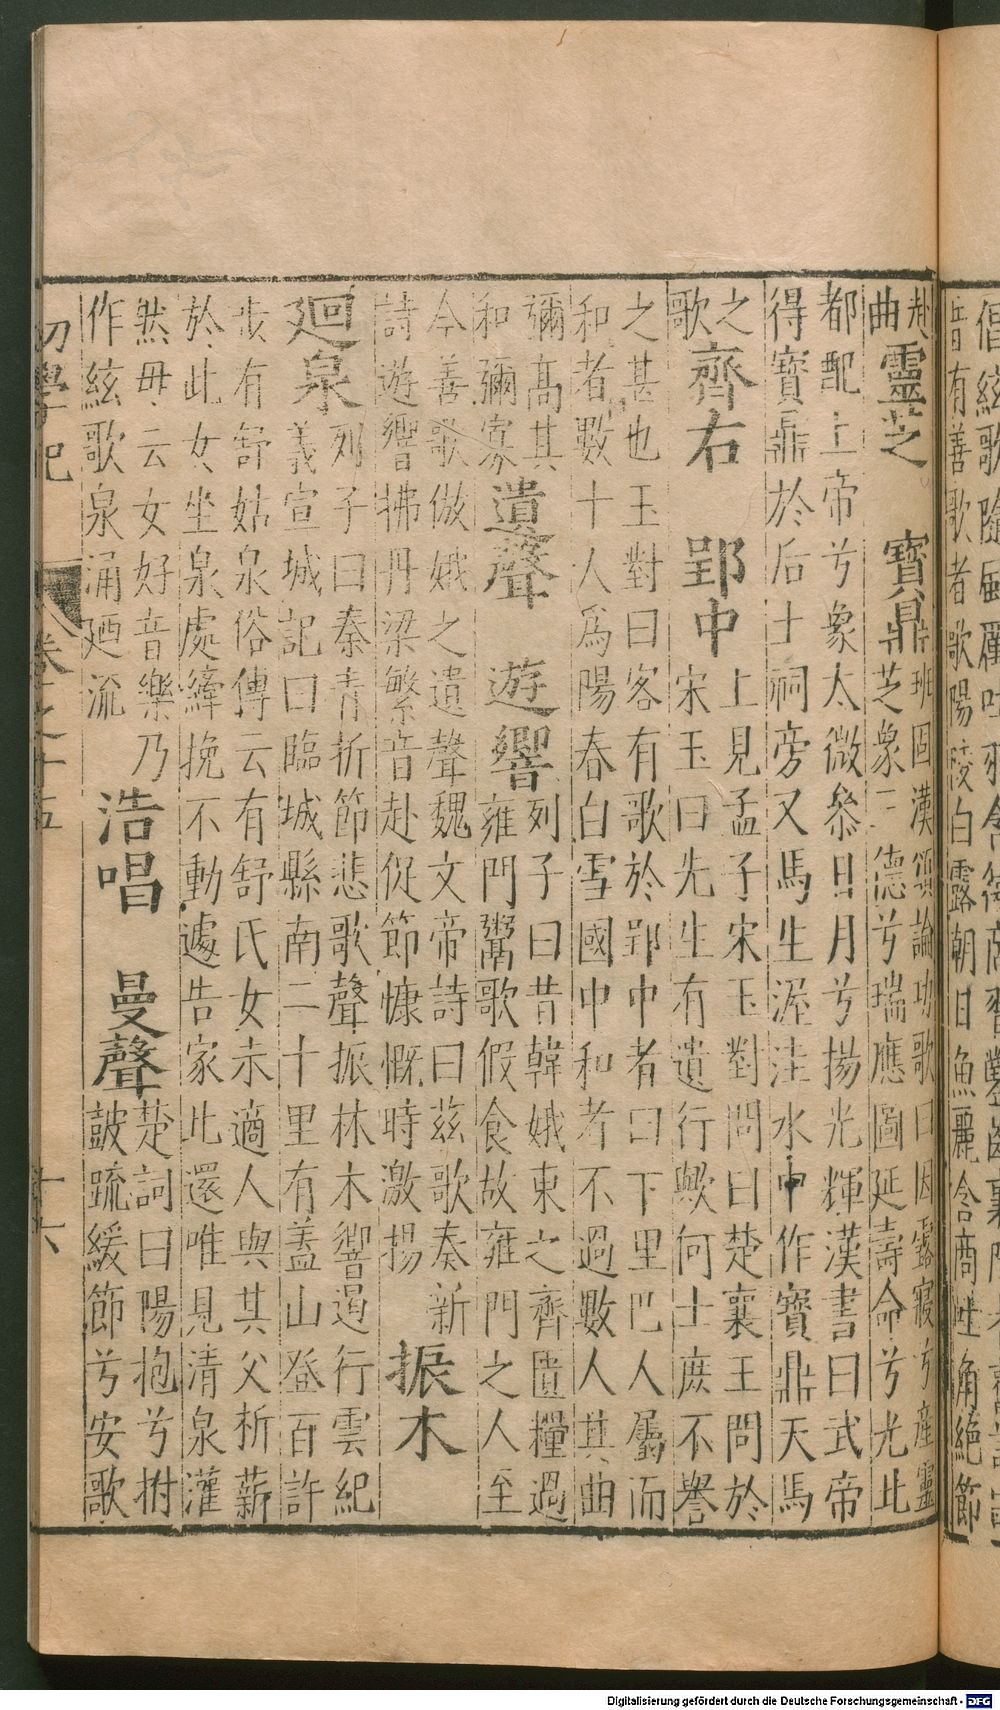 音有善歌者歌陽陵白露朝日魚麗含商吐角絕節
赴
曲
靈芝　寶鼎
班固漢頌論功歌曰因露寢兮產靈
芝象三德兮瑞應圖延壽命兮光此
都配上帝兮象太微參日月兮揚光輝漢書曰武帝
得寶鼎於后土祠旁又馬生渥洼水中作寶鼎天馬
之
歌
齊右　郢中
上見孟子宋玉對問曰楚襄王問於
宋玉曰先生有遺行歟何士庶不譽
之甚也玉對曰客有歌於郢中者曰下里巴人屬而
和者數十人爲陽春白雪國中和者不過數人其曲
彌高其
和彌寡
遺聲　遊響
列子曰昔韓娥東之齊匱糧過
雍門鬻歌假食故雍門之人至
今善歌倣娥之遺聲魏文帝詩曰茲歌奏新
詩遊響拂丹梁繁音赴促節慷慨時激揚
振木
廻泉
列子曰秦青折節悲歌聲振林木響遏行雲紀
義宣城記曰臨城縣南二十里有蓋山登百許
步有舒姑泉俗傳云有舒氏女未適人與其父析薪
於此女坐泉處縴挽不動遽告家此還唯見清泉灌
然毋云女好音樂乃
作絃歌泉涌廻流
浩唱　曼聲
楚詞曰陽抱兮拊
鼓疏緩節兮安歌
初學記　卷之十五　十六
Digitalisierung gefördert durch die Deutsche Forschungsgemeinschaft - DFG